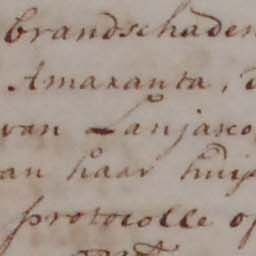 brandschaden
Amaranta,
van Lanjasco
an haar huijs
protocolle op